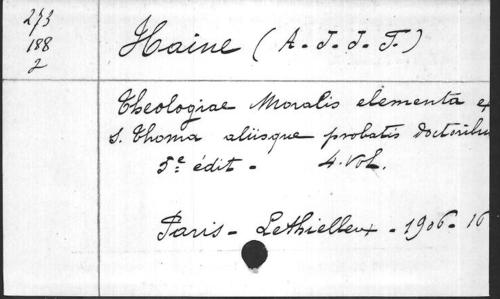 273
188
2
Haine (A. J. J. F.)
Theologiae Moralis elementa ex
S. Thoma aliisque probatis doctoribu
5e édit - 4. vol.
Paris - Lethielleux - 1906 - 16